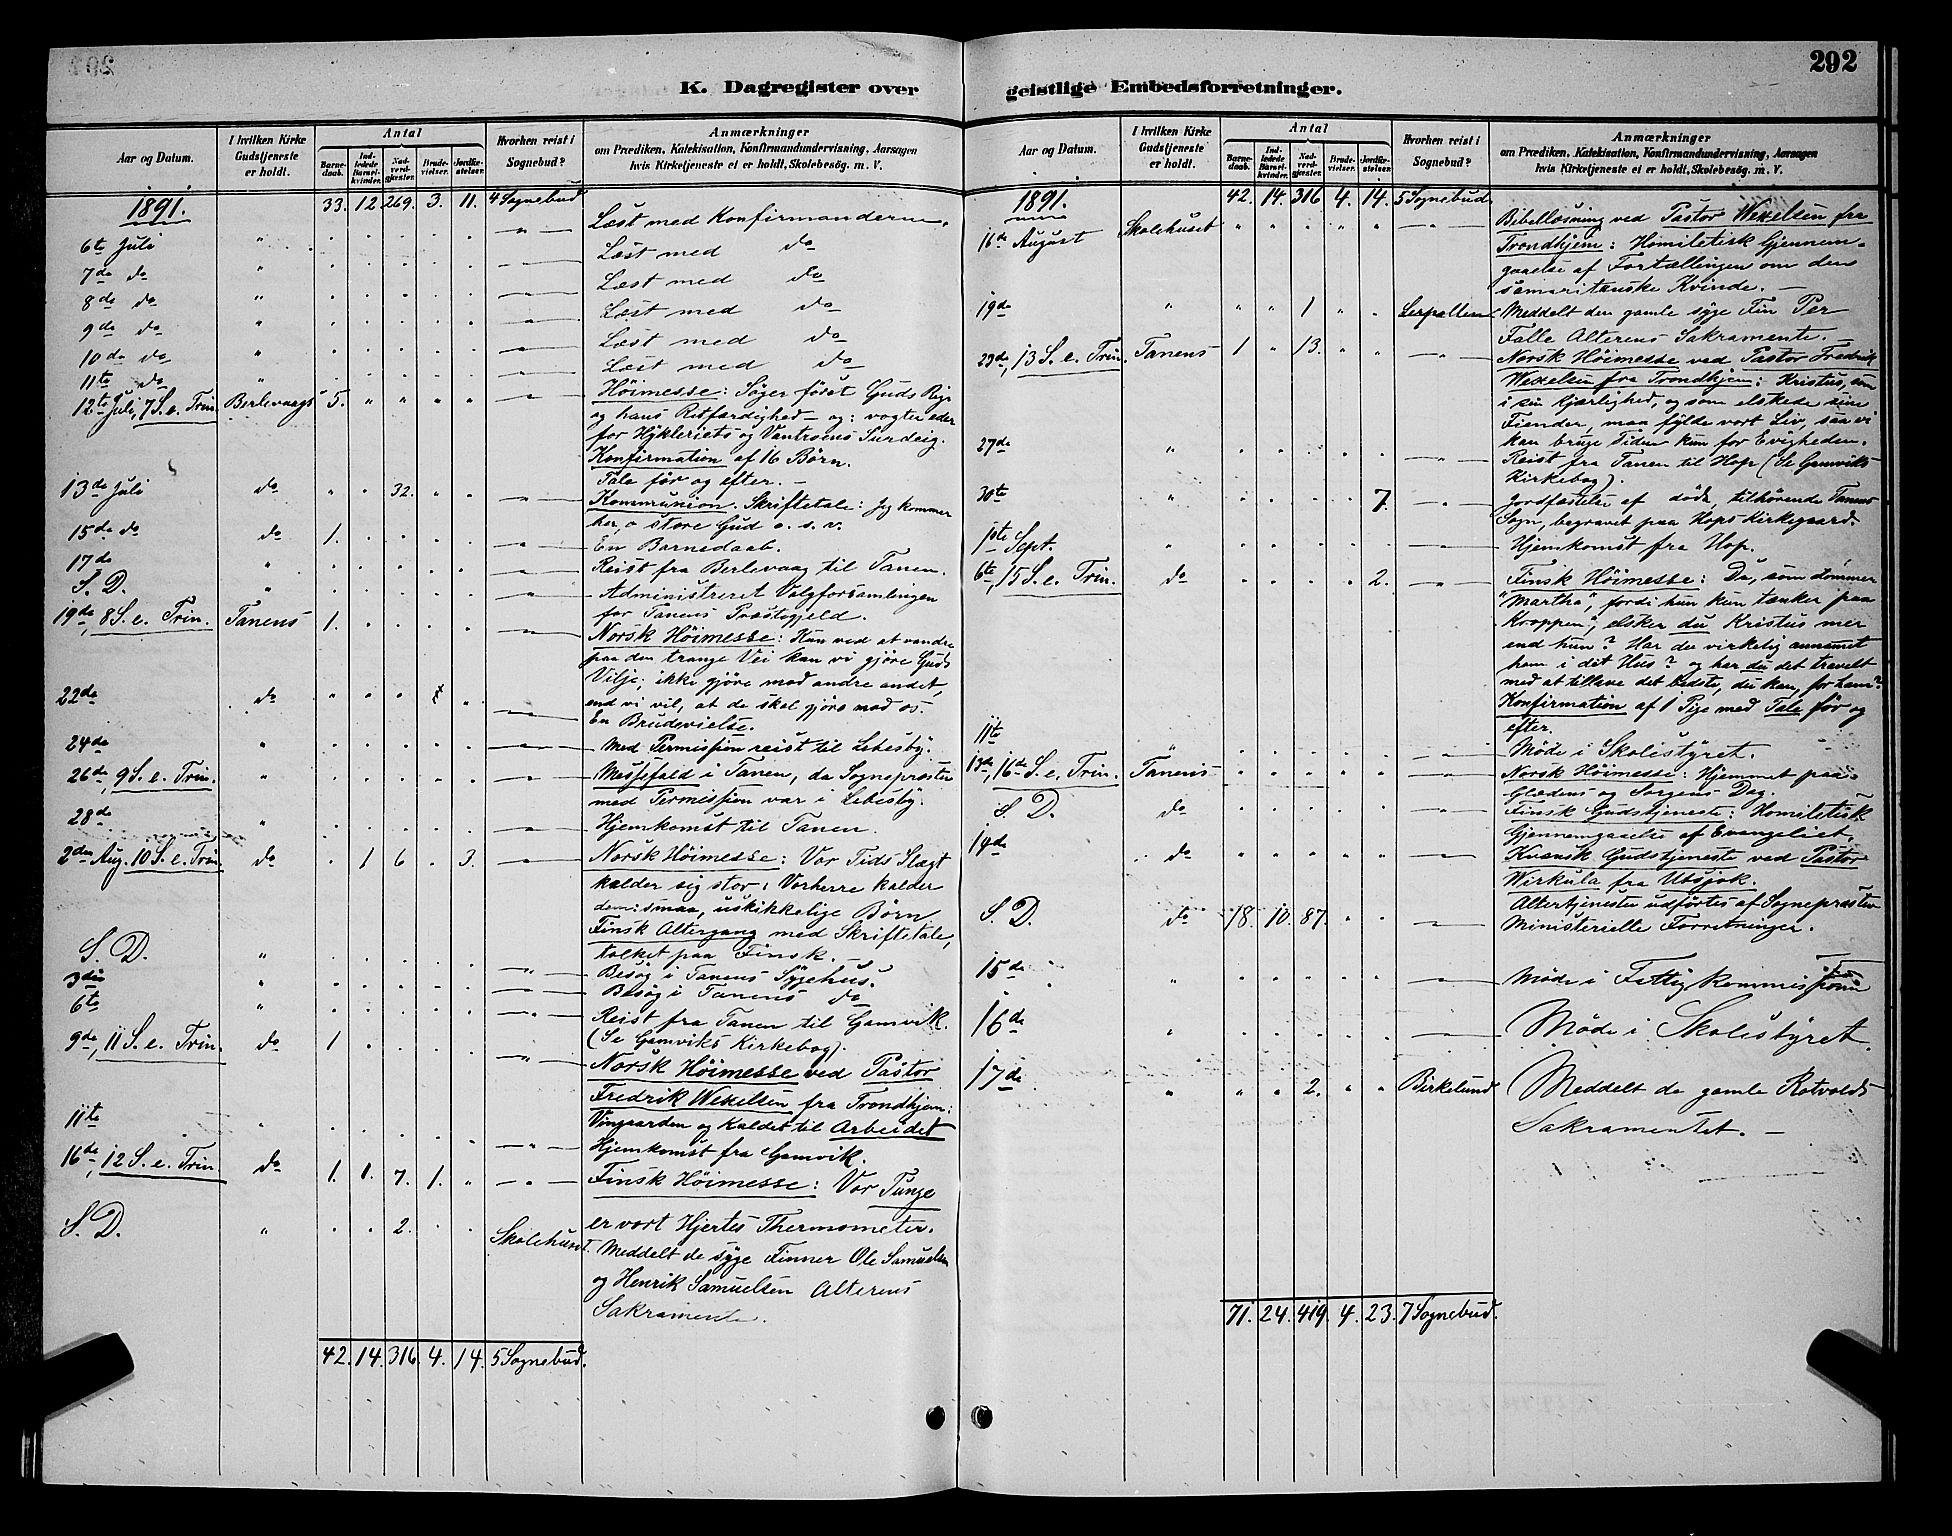 292
K. Dagregister over geistlige Embedsforretninger.
Aar og Datum.
I hvilken Kirke Gudstjeneste er holdt.
Antal
Barnedaab. Indledede Barselkvinder. Nadverdgjæster. Brudevielser. Jordfæstelser.
Hvorhen reist i Sognebud?
Anmærkninger
om Prædiken, Katekisation, Konfirmandundervisning, Aarsagen
hvis Kirketjeneste ei er holdt, Skolebesøg. m. V.
1891. 33. 12 269. 3. 11. 4 Sognebud
6te Juli " Læst med Konfirmanderne.
7de do " Læst med do
8de do " Læst med do
9de do " Læst med do
10de do " Læst med do
11te do " Læst med do
12te Juli, 7 S. e. Trin. Berlevaags 5. " " " " Høimesse: Søger først Guds Rige
og hans Retfærdighed - og: vogter eder
for Hykleriets og Vantroens Surdeig.
Konfirmation af 16 Børn.
Tale før og efter. -
13de Juli do " " 32. " " Kommunion. Skriftetale: Jeg kommer
her, o store Gud o. s. v.
15de do do 1. En Barnedaab.
17de " Reist fra Berlevaag til Tanen.
S. D. " Administreret Valgforsamlingen
for Tanens Præstegjeld.
19de, 8 S. e. Trin. Tanens 1. Norsk Høimesse: Kun ved at vandre
paa den trange Vei kan vi gjøre Guds
Vilje; ikke gjøre mod andre andet,
end vi vil, at de skal gjøre mod os.
22de do En Brudevielse.
24de " Med Permission reist til Lebesby.
26de, 9 S. e. Trin. " Messefald i Tanen, da Sognepræsten
med Permission var i Lebesby.
28de " Hjemkomst til Tanen.
2den Aug. 10 S. e. Trin. do . 1 6 . 3. Norsk Høimesse: Vor Tids Slægt
kalder sig stor; Vorherre kalder
dem smaa, uskikkelige Børn
Finsk Altergang med Skriftetale,
tolket paa Finsk. -
S. D. " Besøg i Tanens Sygehus.
3die " Besøg i Tanens do
6te " Reist fra Tanen til Gamvik.
(Se Gamviks Kirkebog).
9de, 11 S. e. Trin. do 1 Norsk Høimesse ved Pastor
Fredrik Wexelsen fra Trondhjem:
Vingaarden og Kaldet til Arbeidet
11te " Hjemkomst fra Gamvik.
16de, 12 S. e. Trin. do 1. 1. 7. 1. " Finsk Høimesse: Vor Tunge
er vort Hjertes Thermometer.
S. D. " . . 2. . . Skolehuset. Meddelt de syge Finner Ole Samuelsen
og Henrik Samuelsen Alterens
Sakramente.
42. 14. 316. 4. 14. 5 Sognebud.
Aar og Datum.
I hvilken Kirke Gudstjeneste er holdt.
Antal
Barnedaab. Indledede Barselkvinder. Nadverdgjæster. Brudevielser. Jordfæstelser.
Hvorhen reist i Sognebud?
Anmærkninger
om Prædiken, Katekisation, Konfirmandundervisning, Aarsagen
hvis Kirketjeneste ei er holdt, Skolebesøg. m. V.
1891. 42. 14. 316 4. 14. 5 Sognebud
16de August Skolehuset " " " " " Bibellæsning ved Pastor Wexelsen fra
Trondhjem: Homiletisk Gjennem-
gaaelse af Fortællingen om den
samaritanske Kvinde. -
19de " " " 1 " " Meddelt den gamle syge Fin Per
Falle Alterens Sakramente. -
23de, 13 S. e. Trin. Tanens 1 " 13. " " Norsk Høimesse ved Pastor Fredrik
Wexelsen fra Trondhjem: Kristus, som
i sin Kjærlighed, og som elskede sine
Fiender, maa fylde vort Liv, saa vi
kan bruge Tiden kun for Evigheden.
27de " Reist fra Tanen til Hop (Se Gamviks
Kirkebog).
30te " . . . . 7. Jordfæstelse af døde, tilhørende Tanens
Sogn, begravet paa Hops Kirkegaard.
1ste Sept. " Hjemkomst fra Hop.
6te, 15 S. e. Trin. do . . . . 2. Finsk Høimesse: Du, som dømmer
"Martha", fordi hun kun tænker paa
"Kroppen", elsker du Kristus mer
end hun? Har du virkelig annamet
ham i dit Hus? og har du det travelt
med at tillave det bedste, du kan, for ham?
Konfirmation af 1 Pige med Tale før og
efter.
11te " Møde i Skolestyret.
13de, 16de S. e. Trin. Tanens Norsk Høimesse: Hjemmet paa
Glædens og Sorgens Dag.
S. D. do Finsk Gudstjeneste: Homiletisk
Gjennemgaaelse af Evangeliet.
14de do Kvænsk Gudstjeneste ved Pastor
Wirkula fra Utsjok.
Altertjenesten udførtes af Sognepræsten
S. D. do 18. 10. 87. " " Ministerielle Forretninger.
15de " Møde i Fattigkommissionen
16de " Møde i Skolestyret.
17de " " " 2. " " Birkelund Meddelt de gamle Rotvolds
Sakramentet. -
71. 24. 419. 4. 23. 7 Sognebud.